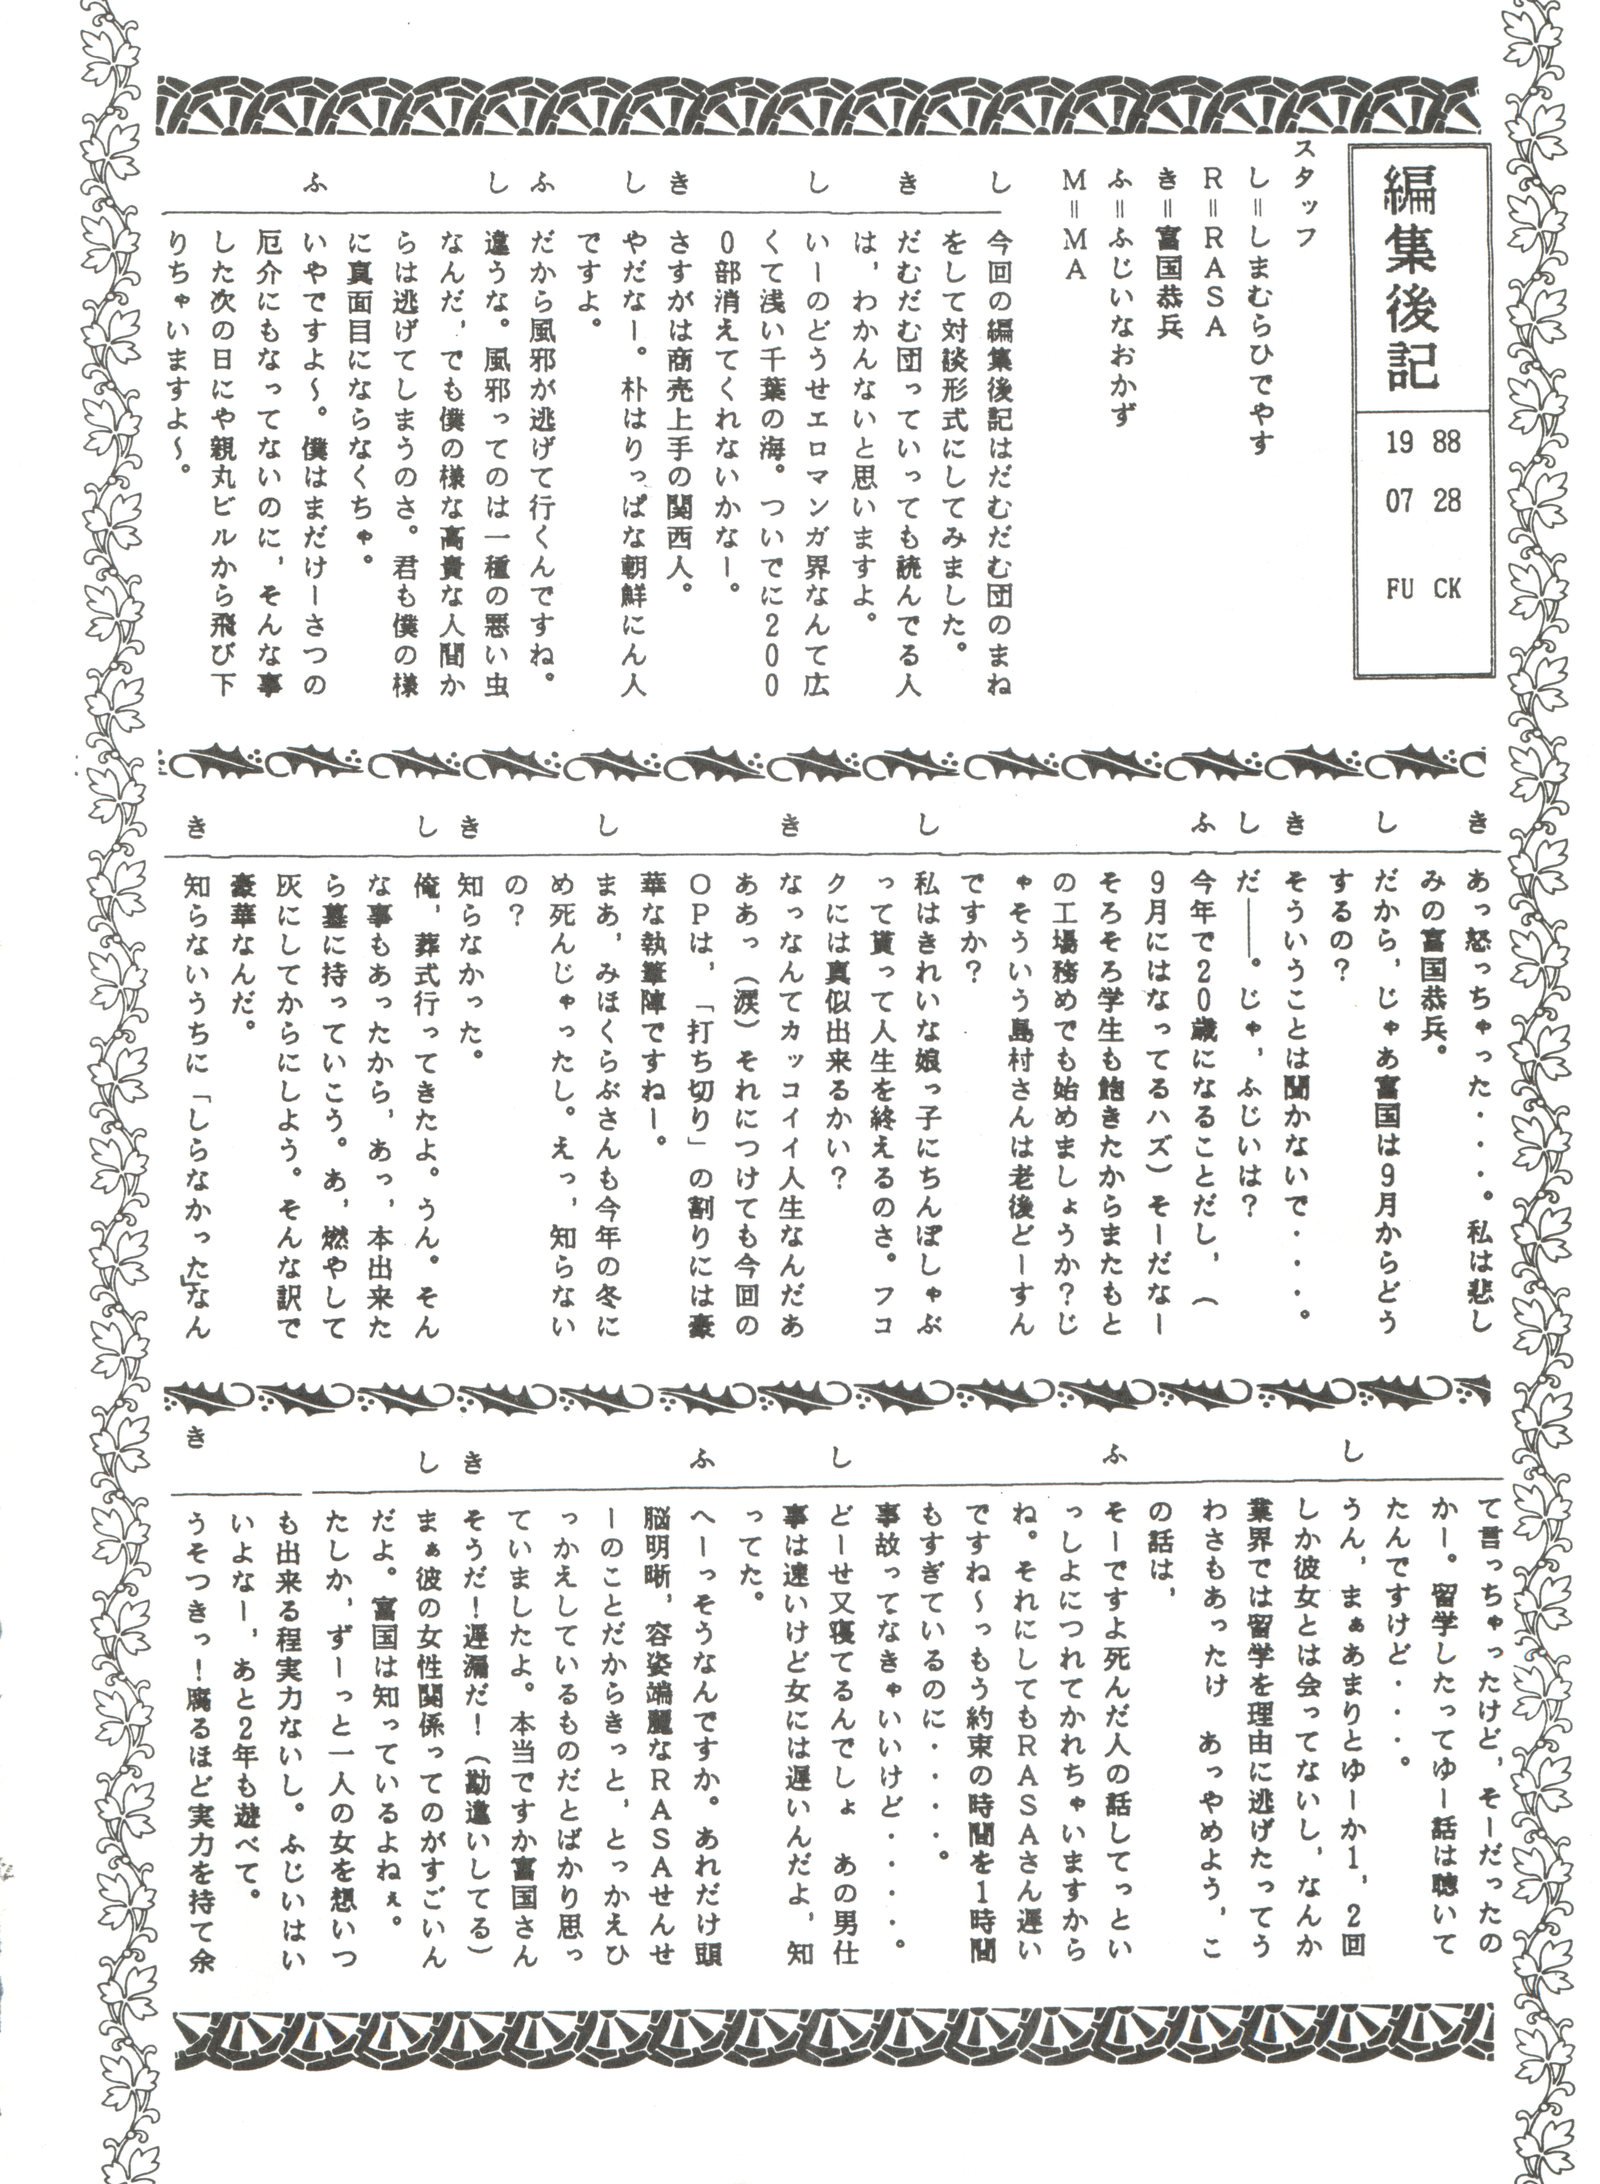 編集後記
19 88
07 28
FU CK
スタッフ
し＝しまむらひでやす
R＝RASA
き＝富国恭兵
ふ＝ふじいなおかず
M＝MA
し 今回の編集後記はだむだむ団のまね
をして対談形式にしてみました。
き だむだむ団っていっても読んでる人
は，わかんないと思いますよ。
し いーのどうせエロマンガ界なんて広
くて浅い千葉の海。ついでに200
0部消えてくれないかなー。
き さすがは商売上手の関西人。
し やだなー。朴はりっぱな朝鮮にん人
ですよ。
ふ だから風邪が逃げて行くんですね。
し 違うな。風邪ってのは一種の悪い虫
なんだ，でも僕の様な高貴な人間か
らは逃げてしまうのさ。君も僕の様
に真面目にならなくちゃ。
ふ いやですよ～。僕はまだけーさつの
厄介にもなってないのに，そんな事
した次の日にや親丸ビルから飛び下
りちゃいますよ～。
き あっ怒っちゃった・・・。私は悲し
みの富国恭兵。
し だから，じゃあ富国は9月からどう
するの？
き そういうことは聞かないで・・・。
し だ――。じゃ，ふじいは？
ふ 今年で20歳になることだし，（
9月にはなってるハズ）そーだなー
そろそろ学生も飽きたからまたもと
の工場務めでも始めましょうか？じ
ゃそういう島村さんは老後どーすん
ですか？
し 私はきれいな娘っ子にちんぽしゃぶ
って貰って人生を終えるのさ。フコ
クには真似出来るかい？
き なっなんてカッコイイ人生なんだあ
ああっ（涙）それにつけても今回の
OPは，「打ち切り」の割りには豪
華な執筆陣ですねー。
し まあ，みほくらぶさんも今年の冬に
め死んじゃったし。えっ，知らない
の？
き 知らなかった。
し 俺，葬式行ってきたよ。うん。そん
な事もあったから，あっ，本出来た
ら墓に持っていこう。あ，燃やして
灰にしてからにしよう。そんな訳で
豪華なんだ。
き 知らないうちに「しらなかった」なん
て言っちゃったけど，そーだったの
かー。留学したってゆー話は聴いて
たんですけど・・・。
し うん，まぁあまりとゆーか1，2回
しか彼女とは会ってないし，なんか
業界では留学を理由に逃げたってう
わさもあったけ　あっやめよう，こ
の話は，
ふ そーですよ死んだ人の話してっとい
っしよにつれてかれちゃいますから
ね。それにしてもRASAさん遅い
ですね～っもう約束の時間を1時間
もすぎているのに・・・。
事故ってなきゃいいけど・・・・。
し どーせ又寝てるんでしょ　あの男仕
事は速いけど女には遅いんだよ，知
ってた。
ふ へーっそうなんですか。あれだけ頭
脳明晰，容姿端麗なRASAせんせ
ーのことだからきっと，とっかえひ
っかえしているものだとばかり思っ
ていましたよ。本当ですか富国さん
き そうだ！遅漏だ！（勘違いしてる）
し まぁ彼の女性関係ってのがすごいん
だよ。富国は知っているよねぇ。
たしか，ずーっと一人の女を想いつ
も出来る程実力ないし。ふじいはい
いよなー，あと2年も遊べて。
き うそつきっ！腐るほど実力を持て余